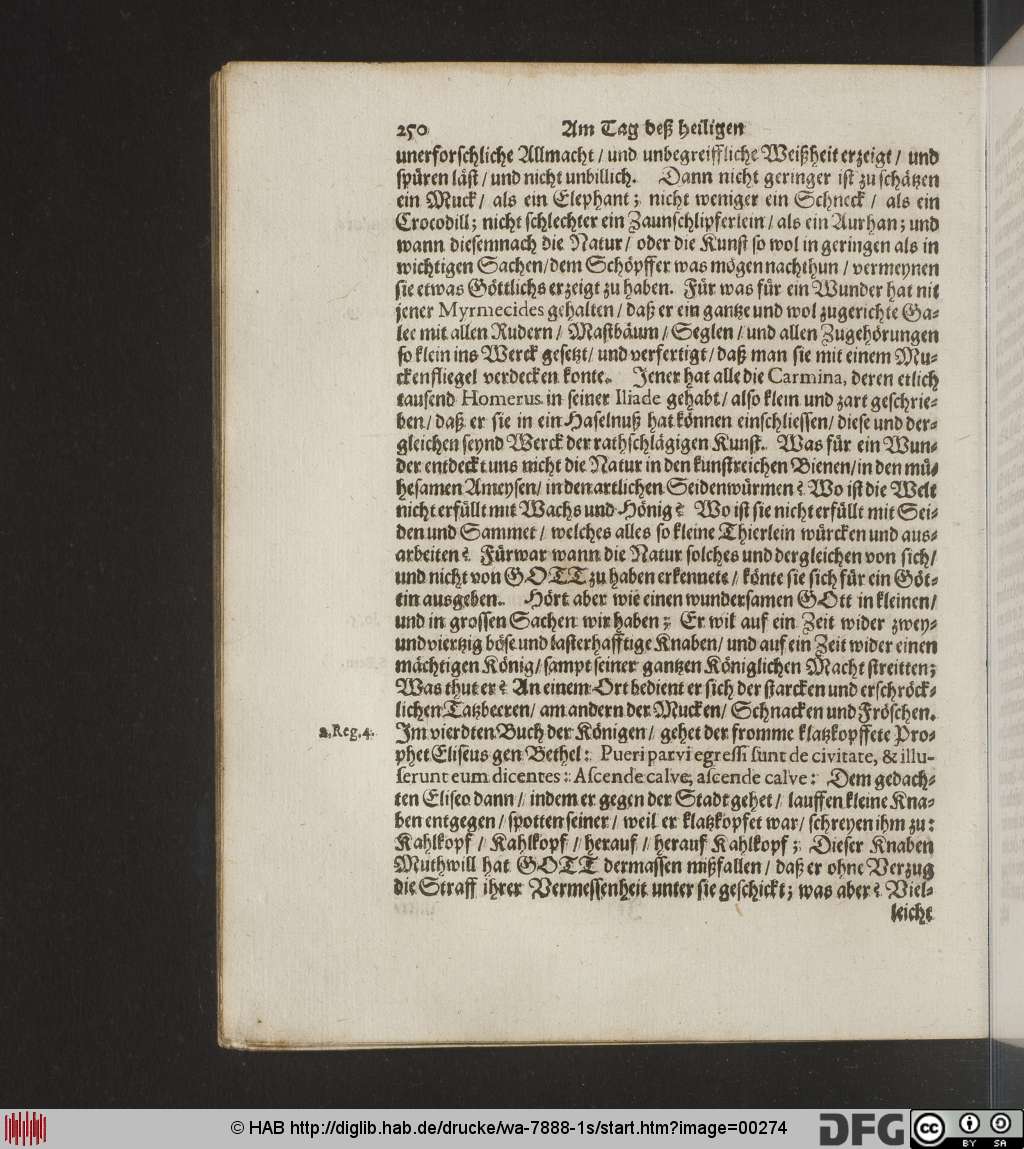 250 Am Tag deß heiligen
unerforschliche Allmacht / und unbegreiffliche Weißheit erzeigt / und
spüren läst / und nicht unbillich. Dann nicht geringer ist zu schätzen
ein Muck / als ein Elephant; nicht weniger ein Schneck / als ein
Crocodill; nicht schlechter ein Zaunschlipferlein / als ein Aurhan; und
wann diesemnach die Natur / oder die Kunst so wol in geringen als in
wichtigen Sachen / dem Schöpffer was mögen nachthun / vermeynen
sie etwas Göttlichs erzeigt zu haben. Für was für ein Wunder hat nit
jener Myrmecides gehalten / daß er ein gantze und wol zugerichte Ga-
lee mit allen Rudern / Mastbäum / Seglen / und allen Zugehörungen
so klein ins Werck gesetzt / und verfertigt / daß man sie mit einem Mu-
ckenfliegel verdecken konte. Jener hat alle die Carmina, deren etlich
tausend Homerus in seiner Iliade gehabt / also klein und zart geschrie-
ben / daß er sie in ein Haselnuß hat können einschliessen / diese und der-
gleichen seynd Werck der rathschlägigen Kunst. Was für ein Wun-
der entdeckt uns nicht die Natur in den kunstreichen Bienen / in den mü-
hesamen Ameysen / in den artlichen Seidenwürmen? Wo ist die Welt
nicht erfüllt mit Wachs und Hönig? Wo ist sie nicht erfüllt mit Sei-
den und Sammet / welches alles so kleine Thierlein würcken und aus-
arbeiten? Fürwar wann die Natur solches und dergleichen von sich /
und nicht von GOTT zu haben erkennete / könte sie sich für ein Göt-
tin ausgeben. Hört aber wie einen wundersamen GOtt in kleinen /
und in grossen Sachen wir haben; Er wil auf ein Zeit wider zwey-
und viertzig böse und lasterhafftige Knaben / und auf ein Zeit wider einen
mächtigen König / sampt seiner gantzen Königlichen Macht streitten;
Was thut er? An einem Ort bedient er sich der starcken und erschröck-
lichen Tatzbeeren / am andern der Mucken / Schnacken und Fröschen.
2. Reg. 4. Im vierdten Buch der Königen / gehet der fromme klatzkopffete Pro-
phet Eliseus gen Bethel: Pueri parvi egressi sunt de civitate, & illu-
serunt eum dicentes: Ascende calve, ascende calve: Dem gedach-
ten Eliseo dann / indem er gegen der Stadt gehet / lauffen kleine Kna-
ben entgegen / spotten seiner / weil er klatzkopfet war / schreyen ihm zu:
Kahlkopf / Kahlkopf / herauf / herauf Kahlkopf; Dieser Knaben
Muthwill hat GOTT dermassen mißfallen / daß er ohne Verzug
die Straff ihrer Vermessenheit unter sie geschickt; was aber? Viel-
leicht
© HAB http://diglib.hab.de/drucke/wa-7888-1s/start.htm?image=00274
DFG
cc BY SA